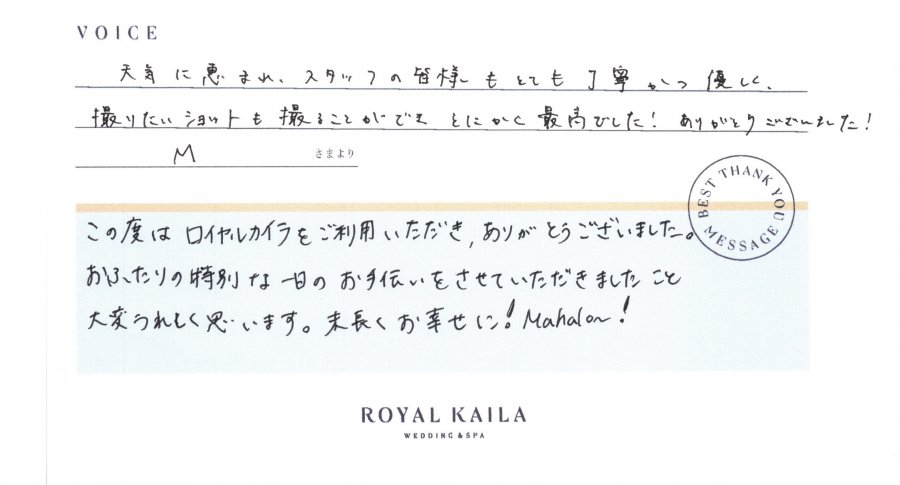 VOICE
天気に恵まれ、スタッフの皆様もとても丁寧かつ優しく、
撮りたいショットも撮ることができ とにかく最高でした! ありがとうございました!
M さまより
BEST THANK YOU MESSAGE
この度はロイヤルカイラをご利用いただき,ありがとうございました。
おふたりの特別な一日のお手伝いをさせていただきましたこと
大変うれしく思います。末長くお幸せに! Mahalo~!
ROYAL KAILA
WEDDING & SPA